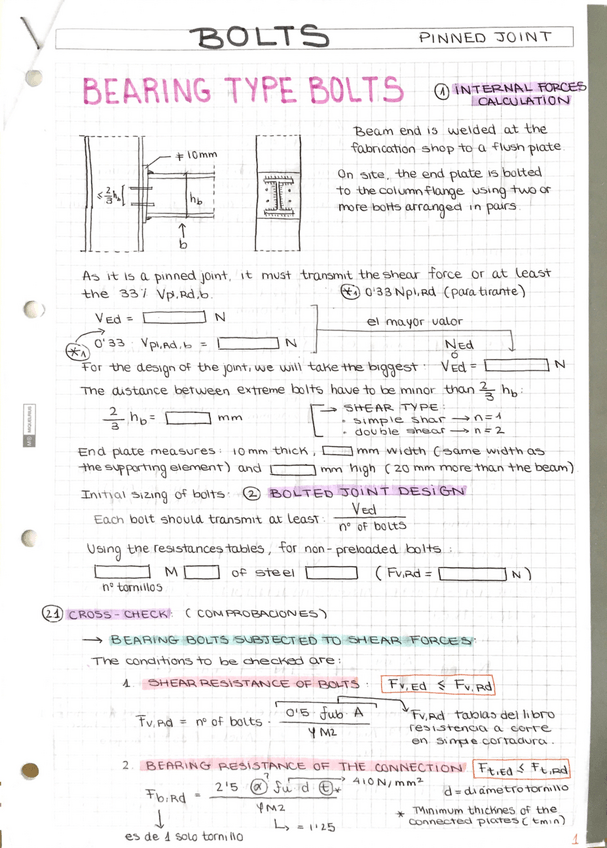 BOLTS PINNED JOINT
BEARING TYPE BOLTS
① INTERNAL FORCES
CALCULATION
Beam end is welded at the
fabrication shop to a flush plate.
On site, the end plate is bolted
to the column flange using two or
more bolts arranged in pairs.
≠ 10mm
≤ 2/3 hb
hb
b
As it is a pinned joint, it must transmit the shear force or at least
the 33% Vpl,Rd,b.
*1 0'33 Npl,Rd (para tirante)
VEd = N
el mayor valor
*1 0'33 · Vpl,Rd,b = N
NEd
o
For the design of the joint, we will take the biggest: VEd = N
The distance between extreme bolts have to be minor than 2/3 hb:
2/3 hb = mm
→ SHEAR TYPE:
· simple shar → n=1
· double shear → n=2
End plate measures: 10mm thick, mm width (same width as
the supporting element) and mm high (20 mm more than the beam)
Initial sizing of bolts: ② BOLTED JOINT DESIGN
Each bolt should transmit at least: VEd / nº of bolts
Using the resistances tables, for non-preloaded bolts:
M of steel (Fv,Rd = N)
nº tornillos
2.1 CROSS-CHECK: (COMPROBACIONES)
→ BEARING BOLTS SUBJECTED TO SHEAR FORCES:
The conditions to be checked are:
1. SHEAR RESISTANCE OF BOLTS: Fv,Ed ≤ Fv,Rd
Fv,Rd = nº of bolts · 0'5 fub · A / γM2
Fv,Rd tablas del libro
resistencia a corte
en simple cortadura.
2. BEARING RESISTANCE OF THE CONNECTION Ft,Ed ≤ Ft,Rd
Fb,Rd = 2'5 · α · fu · d · t* / γM2
?
→ 410 N/mm²
d = diámetro tornillo
↳ = 1'25
* Minimum thicknes of the
connected plates (tmin)
es de 1 solo tornillo
1
MIQUELRIUS